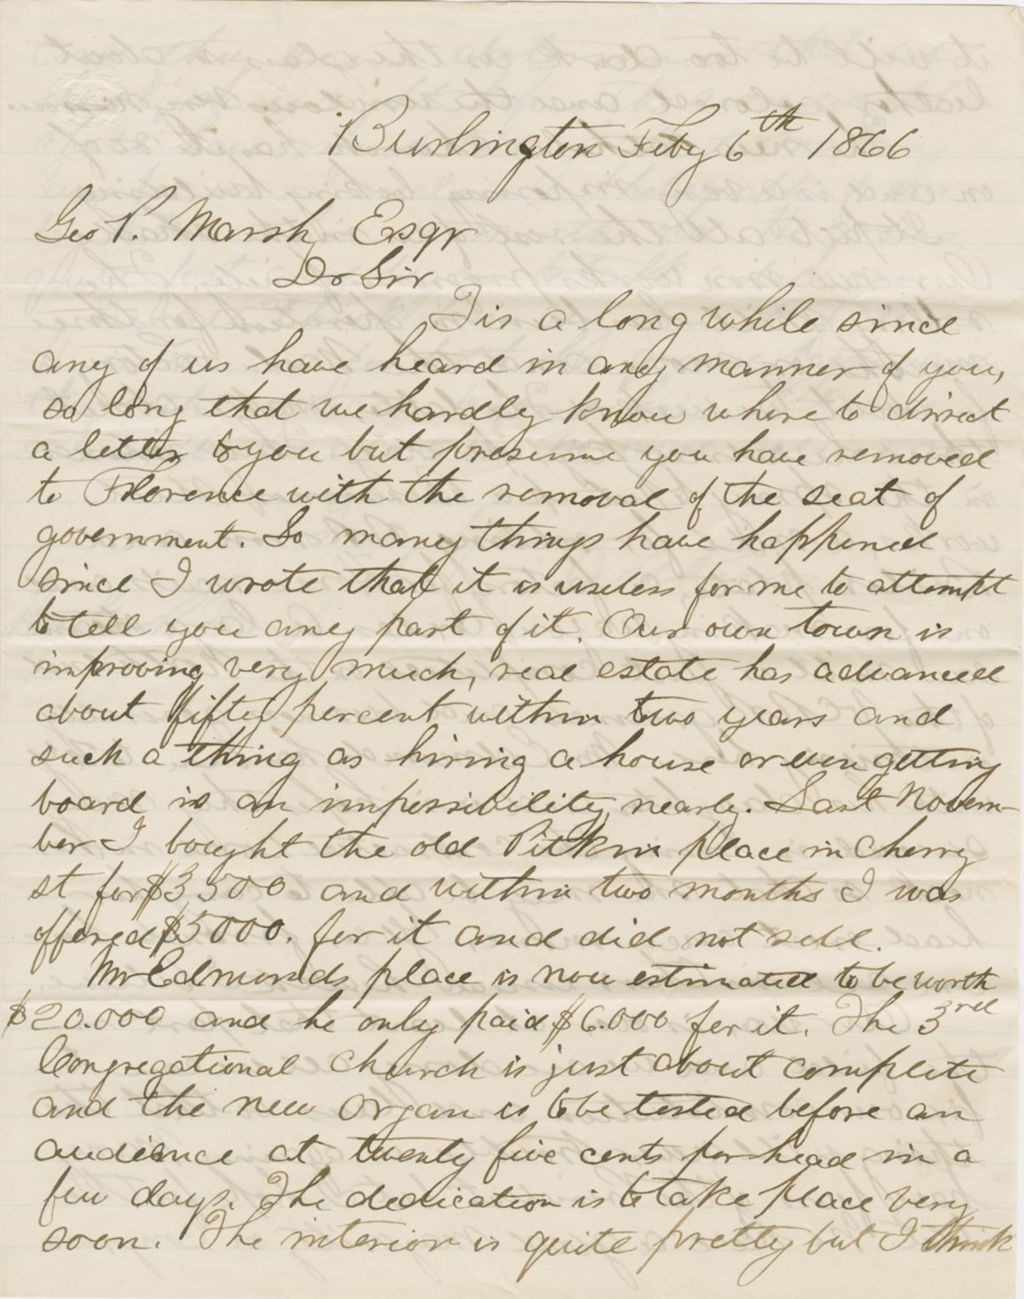 Burlington Feby 6th 1866
Geo P. Marsh, Esqr
Dr Sir
Tis a long while since
any of us have heard in any manner of you,
so long that we hardly know where to direct
a letter to you but presume you have removed
to Florence with the removal of the seat of
government. So many things have happened
since I wrote that it is useless for me to attempt
to tell you any part of it. Our own town is
improving very much, real estate has advanced
about fifty percent within two years and
such a thing as hiring a house or even getting
board is an impossibility, nearly. Last Novem-
ber I bought the old Pitkin place in Cherry
st for $3,500 and within two months I was
offered $5000. for it and did not sell.
Mr Edmunds place is now estimated to be worth
$20.000 and he only paid $6.000 for it. The 3rd
Congregational Church is just about complete
and the new organ is to be tested before an
audience at twenty five cents per head in a
few days. The dedication is to take place very
soon. The interior is quite pretty but I think